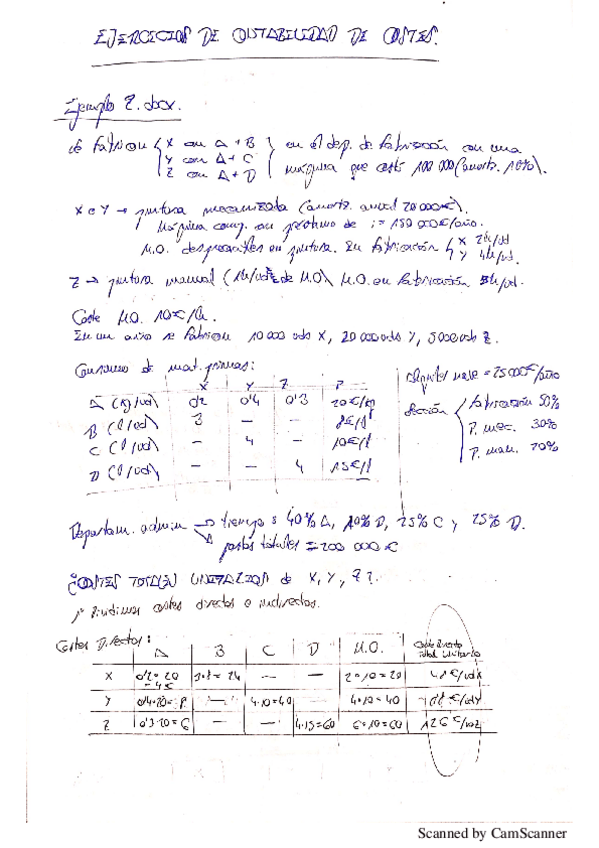 EJERCICIOS DE CONTABILIDAD DE COSTES.
Ejemplo 2.docx.
Se fabrican X con A + B en el dep. de fabricación con una
Y con A + C máquina que costó 100 000 (amort. 10%).
Z con A + D
X e Y → pintura mecanizada (amort. anual 20 000€).
Máquina comp. con préstamo de i = 150 000€/año.
M.O. despreciable en pintura. En fabricación X 2h/ud
Y 4h/ud.
Z → pintura manual (1h/ud Z de M.O.) M.O. en fabricación 5h/ud.
Coste M.O. 10€/h.
En un año se fabrican 10 000 uds X, 20 000 uds Y, 5000 uds Z.
Consumo de mat. primas:
X Y Z P
A (kg/ud) 0'2 0'4 0'3 20€/kg
B (l/ud) 3 — — 8€/l
C (l/ud) — 4 — 10€/l
D (l/ud) — — 4 15€/l
= 25000€/año
Sección Fabricación 50%
P. mec. 30%
P. man. 20%
Departam. admin → tiempos 40% A, 10% D, 25% C y 25% D.
gastos totales = 200 000 €
¿COSTES TOTALES UNITARIOS de X, Y, Z?.
1º Dividimos costes directos e indirectos.
Costes Directos:
A B C D M.O. Coste directo total unitario
X 0'2·20 = 4€ 3·8 = 24 — — 2·10 = 20 48€/udX
Y 0'4·20 = 8 — 4·10 = 40 — 4·10 = 40 88€/udY
Z 0'3·20 = 6 — — 4·15 = 60 6·10 = 60 126€/udZ
Scanned by CamScanner